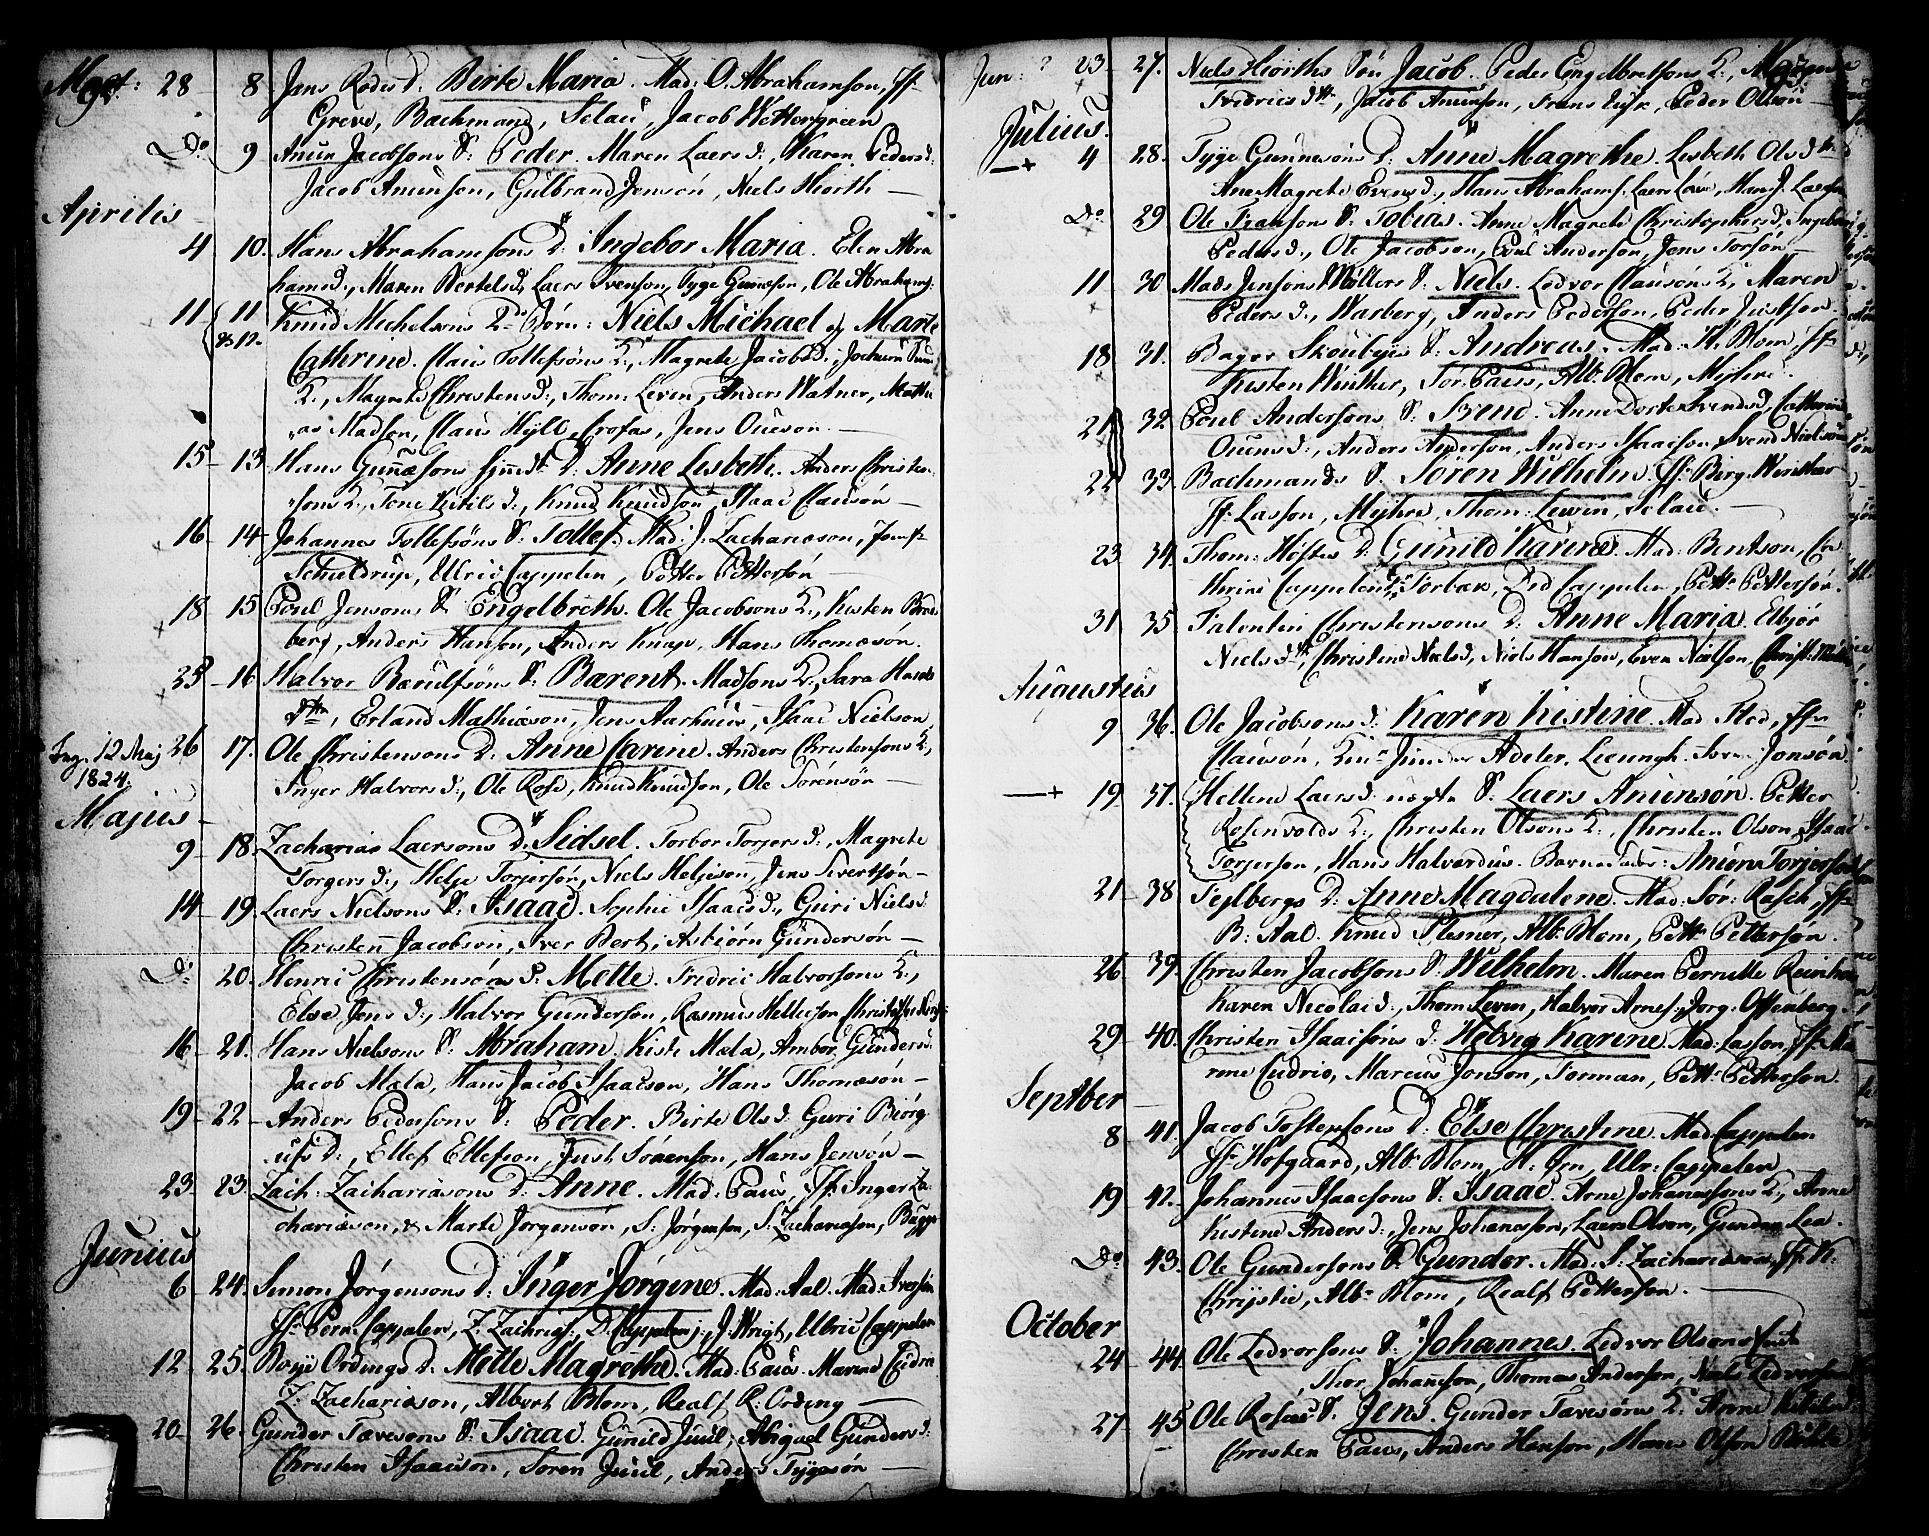 28 8 Jens Rodes D. Birte Maria. Mad: O. Abrahamson, Jfr
Greve, Bachmand, Selau, Jacob Wettergreen
Do 9 Anun Jacobsons S: Peder. Maren Laers d:, Karen Peders d:
Jacob Anunson, Gulbrand Jonson, Niels Hiorth —
Aprilis
4 10. Hans Abrahamsons D: Ingebor Maria. Elen Abra
hams d:, Maren Bertels d, Laers Svenson, Tyge Gunneson, Ole Abrahams:
11 11 & 12 Knud Michelsons 2de Börn: Niels Michael og Marte
Cathrine. Claus Tollefsöns K:, Magrete Jacobs d:, Jochum
K:, Magrete Christens d:, Thom: Leven, Anders Watner, Mathi
as Madsen, Claus Hyll, Jens Oueson. —
15 13 Hans Gunnesons D: Anne Lisbeth. Anders Christen
sons K:, Tone Ketils d:, Knud Knudson, Isaac Clauson —
16 14 Johannes Tollefsöns S: Tollef. Mad: J. Zachariason, Jomfr
Schieldrup, Ulric Cappelen, Petter Petterson —
18 15 Poul Jensons S: Engelbreth. Ole Jacobsons K:, Kisten
berg, Anders Hanson, Anders Knap, Hans Thomæsön.
25 16 Halvor Bærulfsöns S: Bærent. Madsons K:, Sara
dtr, Erland Mathiason, Jens Aarhuus, Isaac Nielson
Ing. 12 Maj 1824. 26 17. Ole Christensons D. Anne Carine. Anders Christensons K:,
Inger Halvors d:, Ole Rose, Knud Knudson, Ole Sörensön —
Majus
9 18. Zacharias Laersons D. Sidsel. Torbor Torjers d:, Magrete
Torgers d:, Helje Torjersön, Niels Heljeson, Jens Sivertsön —
14 19. Laers Nielsons S: Isaac. Sophie Isaacs d:, Guri Niels d
Christen Jacobson, Iver Bert:, Asbiörn Gundersön —
Do 20. Henric Christensöns D. Mette. Fridric Halvorsons K:,
Else Jens d:, Halvor Gunderson, Rasmus Helleson
16 21. Hans Nielsons S. Abraham, Kisti Mæla, Ambor Gunders d:
Jacob Mæla, Hans Jacob Isaacson, Hans Thomæsön —
19 22 Anders Pedersons S: Peder. Birte Ols d: Guri Biörg
ufs d:, Ellef Ellefson, Just Sörenson, Hans Jensön —
23 23. Zach: Zachariasons D: Anne. Mad: Paus, Jfr Inger Za
chariæson, & Marte Jorgensön, S: Jörgenson, S: Zachariason, Bugge
Junius
6 24. Simon Jörgensons D: Inger Jörgine. Mad: Aal. Mad: Iverson
Jfr Pern: Cappelen, Z. Zachrias:, D. Cappelen j:, J: Wrigt, Ulric Cappelen
12 25. Boye Ordings D: Mette Magrethe. Mad: Paus. Marine
Z: Zachariæson, Albert Blom, Realf R. Ording —
20 26. Gunder Tævesons S: Isaac. Gunild Juul, Abigael Gunders d:
Christen Isaacson, Soren Juul, Anders Tygesön —
Jun: 23 27. Niels Hiorths Sön Jacob. Peder Engebretsons K:,
Fridrics dtr, Jacob Anunson, Frans, Peder Olson —
Julius.
4 28. Tyge Gunnesöns D: Anne Magrethe. Lisbeth Ols dtr
Ane Magrete Evens d:, Hans Abrahams:, Laers Löve, Hans J. Laerson
Do 29 Ole Fransons S: Tobias. Anne Magrete Christophers d:, Ingeborg
Peders d:, Ole Jacobson, Poul Anderson, Jens Torsön —
11 30 Mads Jensons Möllers S: Niels. Ledvor Clausöns K:, Maren
Peders d:, Warberg, Anders Pederson, Peder Justson.
18 31. Bager Skoubyes S: Andreas. Mad: H. Blom, Jfr
Kisten Winther, Sör: Paus, Alb: Blom, Myhre.
21 32 Poul Andersons S: Svend. Anne Dorte Svends d, Cathrine
Ouens d:, Anders Anderson, Anders Isaacson, Svend Nielsön
22 33. Bachmands S: Sören Wilhelm. Jfr Birg. Winther
Jfr: Lasson, Myhre, Thom: Lewin, Selau. —
23 34. Thom: Höftes D: Gunild Karine. Mad: Bentson, Ca
thrine Cappelen, Torbæk, Did Cappelen, Pettr Petterson.
31 35 Falentin Christensons D: Anne Maria. Elbjör
Niels dtr, Christine Niels d, Niels Hanson, Even Nielson,
Augustus
9 36. Ole Jacobsons d: Karen Kistine. Mad Flod, Jfr
Clausön, Adeler. Lieungh. Iver Jonsön
19 37. Hellene Laers d: uægte S: Laers Anunsön. Petter
Rosenvolds K:, Christen Olsons K:, Christen Olson, Isaac
Torjerson, Hans Halvordus. Barnefader: Anun Torjersön
21 38. Fejlbergs D: Anne Magdalene. Mad: Sör: Rasch, Jfr
B: Aal. Knud Plesner, Alb: Blom, Pettr Petterson.
26 39. Christen Jacobsons S: Wilhelm. Maren Pernille
Karen Nicolai d:, Thom: Leven, Halvor Arnes:, Jorg: Offenberg
29 40. Christen Isaacsöns d: Helvig Karine. Mad: Lasson, Jfr: Ma
rine Cudrio, Marcus Jonson, Forman, Pettr Petterson.
Septber
8 41. Jacob Tostensons D: Else Christine. Mad Cappelen
Jfr Hofgaard, Alb: Blom, H: Örn, Ulr: Cappelen
19 42. Johannes Isaacsons S: Isaac. Arne Johannesons K:, Anne
Kistine Anders d:, Jens Johaneson, Laers Olson, Gunder Lea.
Do 43. Ole Gundersons S: Gunder. Mad: S: Zachariæson, Jfr: K:
Chrystie, Alb: Blom, Realf Petterson. —
October
24 44. Ole Ledvorsons S: Johannes. Ledvor Olsons Enke
Thor Johaneson, Thomas Anderson, Niels Ledvorson
27 45. Ole Roses S: Jens. Gunder Tævesöns K: Anne Ketels d:
Christen Paus, Anders Hanson, Hans Olson